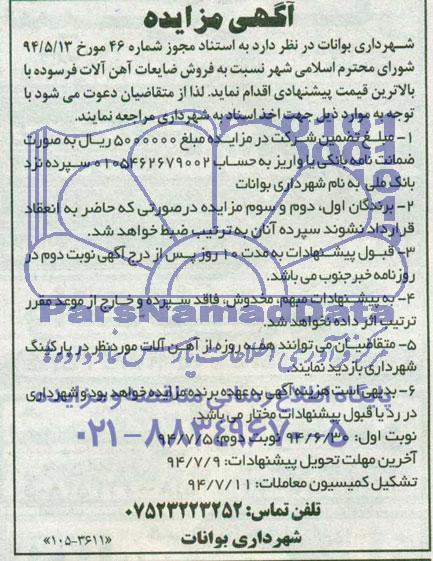 آگهی مزایده
شهرداری بوانات در نظر دارد به استناد مجوز شماره ۴۶ مورخ ۹۴/۵/۱۳
شورای محترم اسلامی شهر نسبت به فروش ضایعات آهن آلات فرسوده با
بالاترین قیمت پیشنهادی اقدام نماید. لذا از متقاضیان دعوت می شود با
توجه به موارد ذیل جهت اخذ اسناد به شهرداری مراجعه نمایند.
۱- مبلغ تضمین شرکت در مزایده مبلغ ۵۰۰۰۰۰۰ ریال به صورت
ضمانت نامه بانکی یا واریز به حساب ۰۱۰۵۴۶۲۶۷۹۰۰۲ سپرده نزد
بانک ملی به نام شهرداری بوانات
۲- برندگان اول، دوم و سوم مزایده در صورتی که حاضر به انعقاد
قرارداد نشوند سپرده آنان به ترتیب ضبط خواهد شد.
۳- قبول پیشنهادات به مدت ۱۰ روز پس از درج آگهی نوبت دوم در
روزنامه خبرجنوب می باشد.
۴- به پیشنهادات مبهم، مخدوش، فاقد سپرده و خارج از موعد مقرر
ترتیب اثر داده نخواهد شد.
ParsNamadData
۵- متقاضیان می توانند همه روزه از آهن آلات مورد نظر در پارکینگ
شهرداری بازدید نمایند.
۶- بدیهی است هزینه آگهی به عهده برنده مزایده خواهد بود و شهرداری
در رد یا قبول پیشنهادات مختار می باشد.
۰۲۱-۸۸۳۴۹۶۷۰-۵
نوبت اول: ۹۴/۶/۳۰ نوبت دوم: ۹۴/۷/۵
آخرین مهلت تحویل پیشنهادات: ۹۴/۷/۹
تشکیل کمیسیون معاملات: ۹۴/۷/۱۱
تلفن تماس: ۰۷۵۲۳۲۲۳۲۵۲
شهرداری بوانات
«۱۰۵-۳۶۱۱»